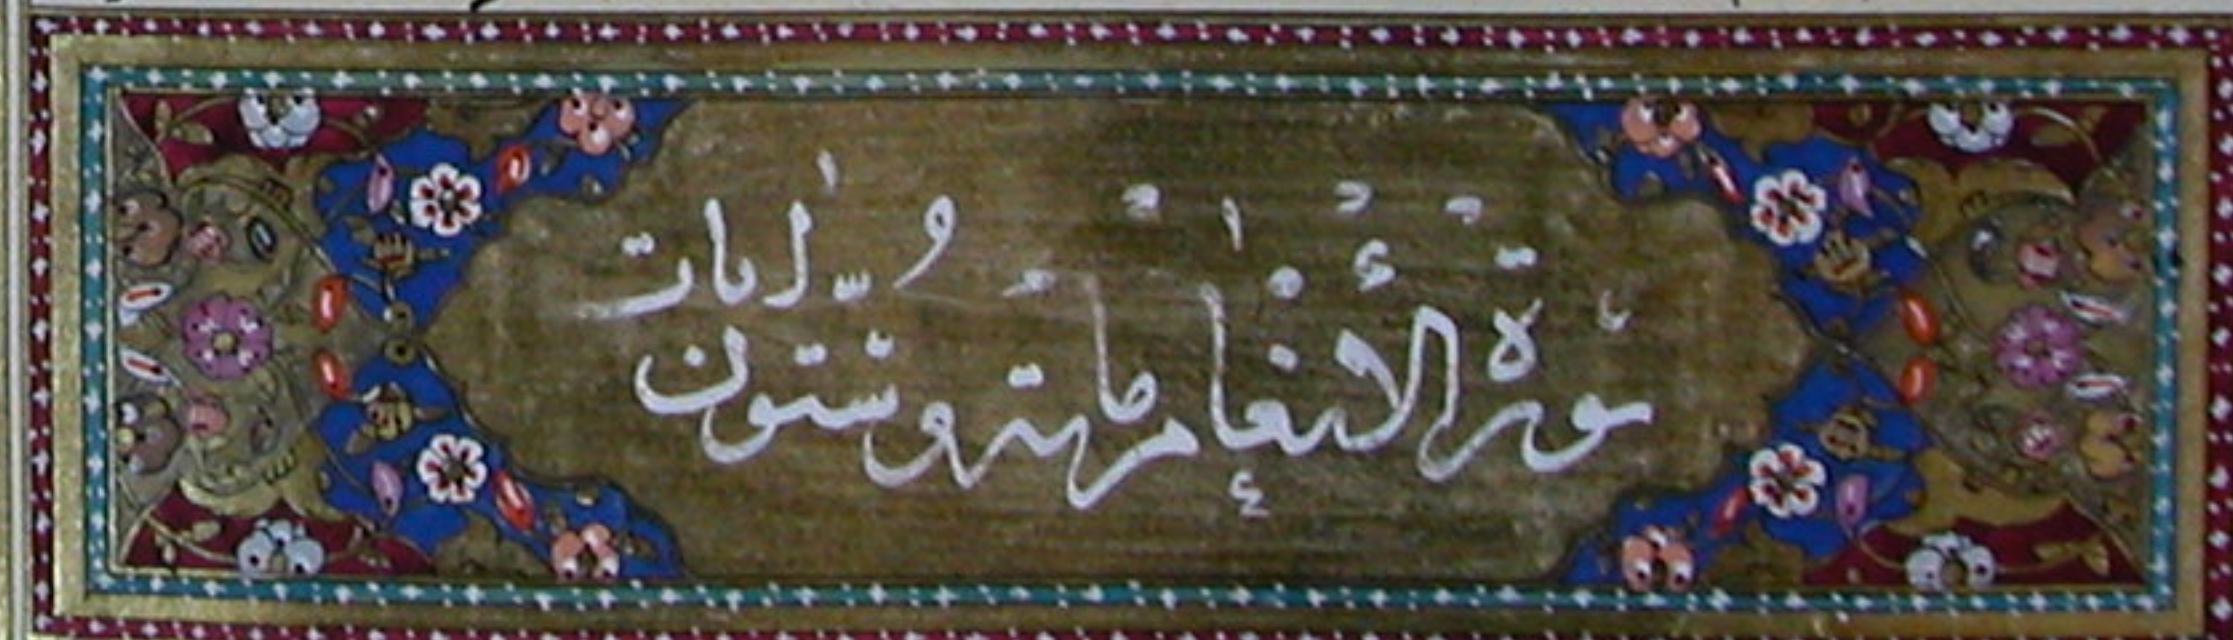 سورة الانعام مائة وستون اٰيات